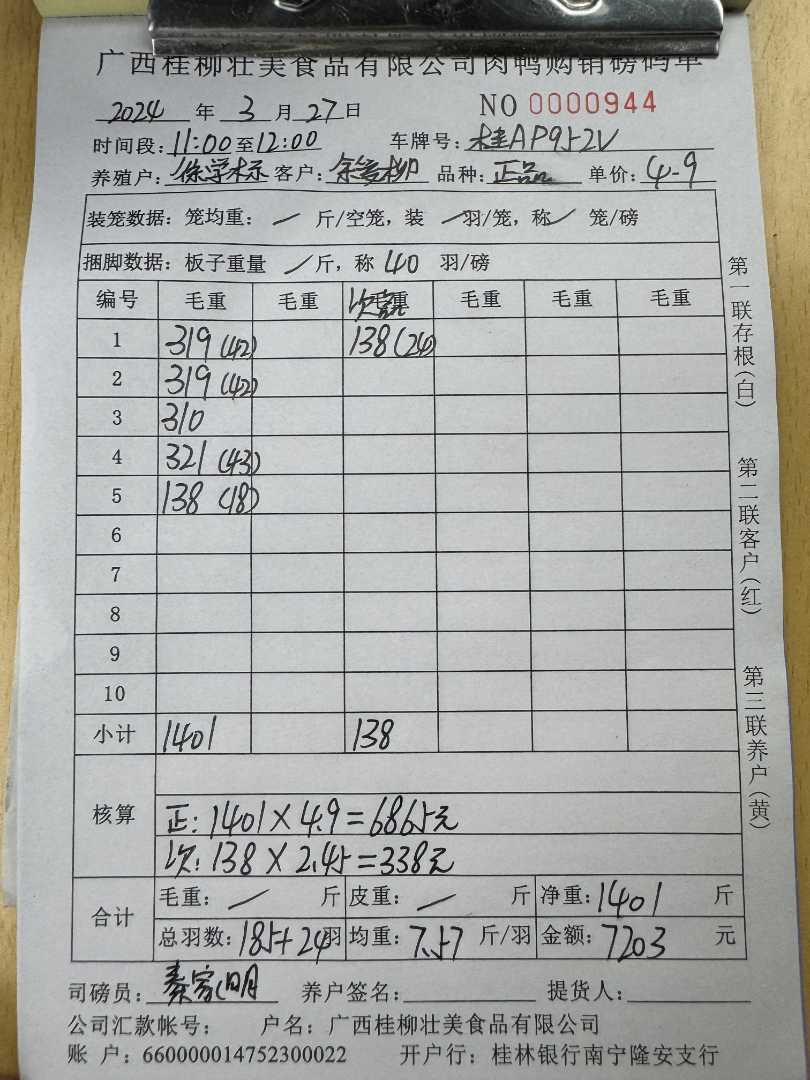 广西桂柳壮美食品有限公司肉鸭购销磅码单
2024 年 3 月 27 日 NO 0000944
时间段: 11:00 至 12:00 车牌号: 桂AP952V
养殖户: 徐学标 客户: 柳 品种: 正品 单价: 4-9
装笼数据: 笼均重: / 斤/空笼, 装 / 羽/笼, 称 / 笼/磅
捆脚数据: 板子重量 / 斤, 称 40 羽/磅
编号 毛重 毛重 次 毛重 毛重 毛重
1 319 (42) 138 (24)
2 319 (42)
3 310
4 321 (43)
5 138 (18)
6
7
8
9
10
小计 1401 138
核算
正: 1401 X 4.9 = 6865元
次: 138 X 2.45 = 338元
合计
毛重: / 斤 皮重: / 斤 净重: 1401 斤
总羽数: 185+24 羽 均重: 7.57 斤/羽 金额: 7203 元
司磅员: 秦家明 养户签名: 提货人:
公司汇款帐号: 户名: 广西桂柳壮美食品有限公司
账 户: 660000014752300022 开户行: 桂林银行南宁隆安支行
第一联存根(白)
第二联客户(红)
第三联养户(黄)